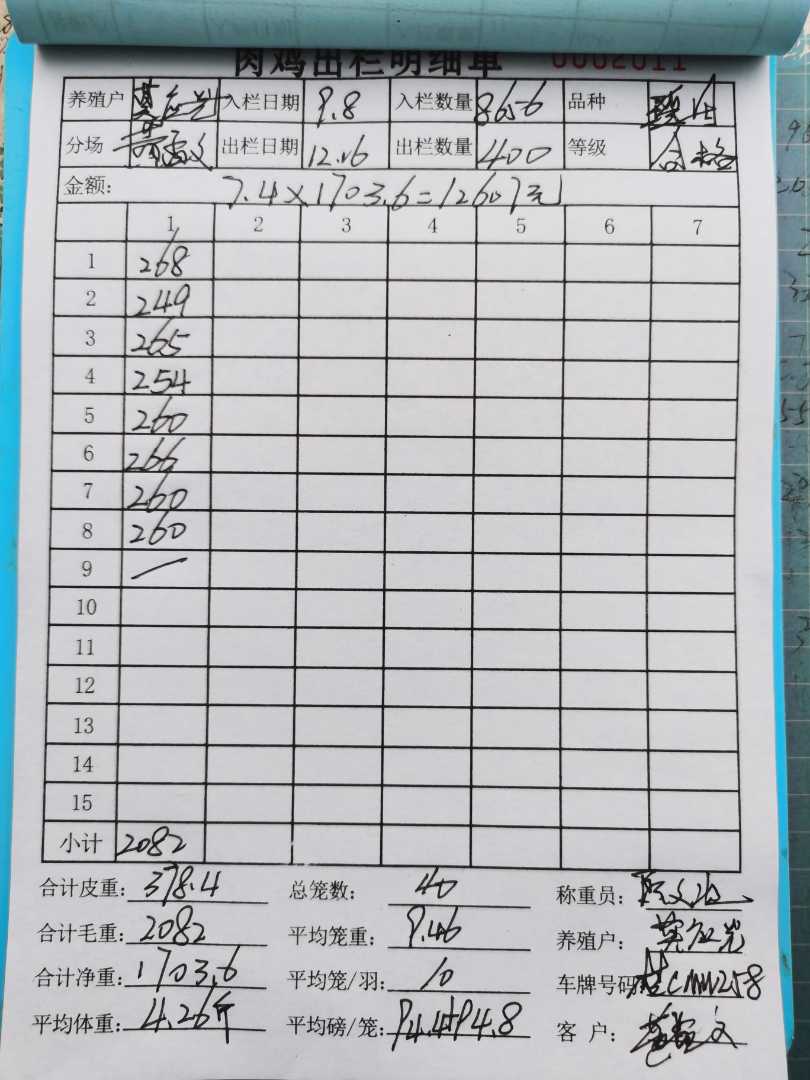 肉鸡出栏明细单 0002011
养殖户 入栏日期 9.8 入栏数量 8656 品种
分场 出栏日期 12.16 出栏数量 400 等级 合格
金额: 7.4×1703.6=12607元
1 2 3 4 5 6 7
1 268
2 249
3 265
4 254
5 260
6 266
7 260
8 260
9 —
10
11
12
13
14
15
小计 2082
合计皮重: 378.4 总笼数: 40 称重员:
合计毛重: 2082 平均笼重: 9.46 养殖户:
合计净重: 1703.6 平均笼/羽: 10 车牌号码:
平均体重: 4.26斤 平均磅/笼: 客 户: